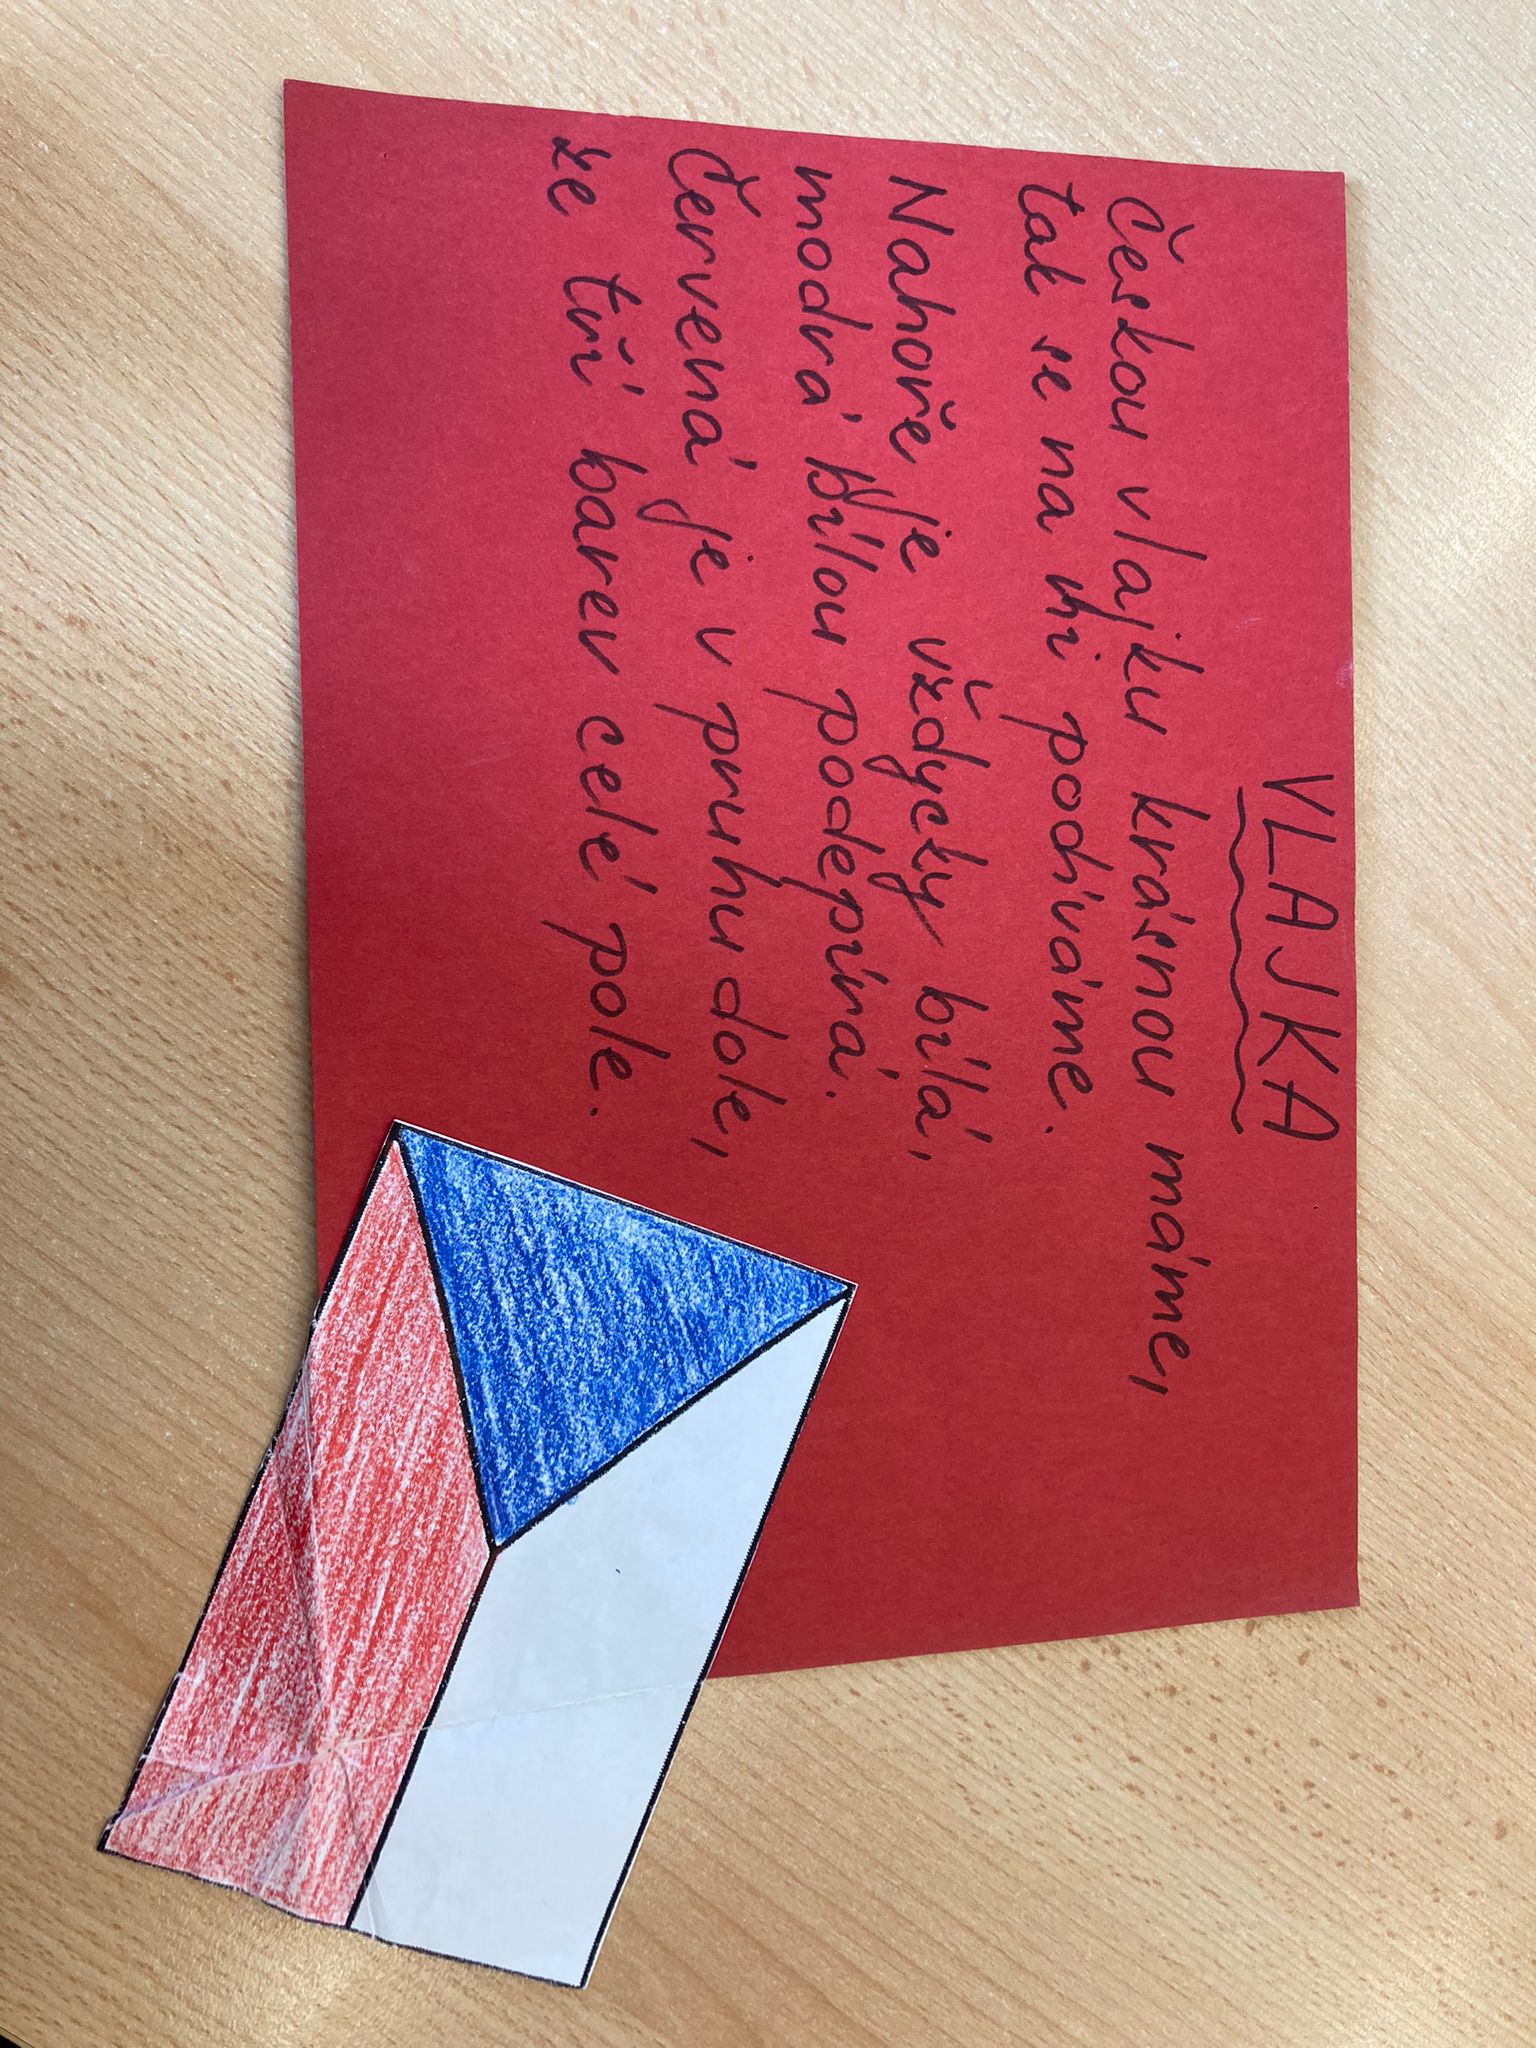 VLAJKA
Českou vlajku krásnou máme,
tak se na ni podíváme.
Nahoře je vždycky bílá,
modrá bílou podepírá.
Červená je v pruhu dole,
ze tří barev celé pole.